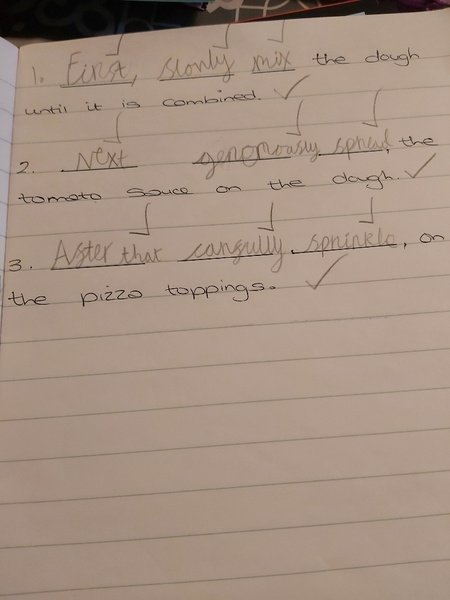 1. First, slowly mix the dough
until it is combined.
2. Next generously spread, the
tomato sauce on the dough.
3. After that carefully sprinkle, on
the pizza toppings.